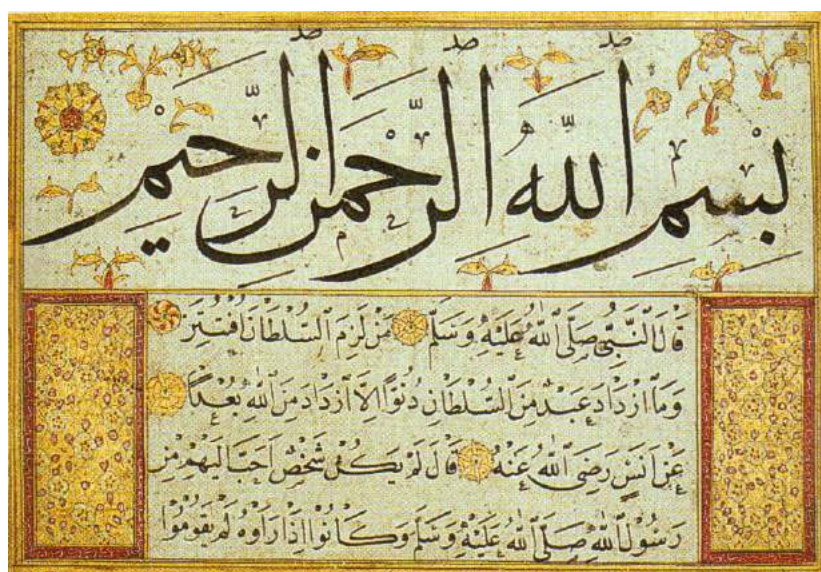 بِسْمِ اللّٰهِ الرَّحْمٰنِ الرَّحِيْمِ
قَالَ النَّبِيُّ صَلَّى اللّٰهُ عَلَيْهِ وَسَلَّمَ مَنْ لَزِمَ السُّلْطَانَ افْتُتِنَ
وَمَا ازْدَادَ عَبْدٌ مِنَ السُّلْطَانِ دُنُوًّا اِلَّا ازْدَادَ مِنَ اللّٰهِ بُعْدًا
عَنْ اَنَسٍ رَضِيَ اللّٰهُ عَنْهُ قَالَ لَمْ يَكُنْ شَخْصٌ اَحَبَّ اِلَيْهِمْ مِنْ
رَسُولِ اللّٰهِ صَلَّى اللّٰهُ عَلَيْهِ وَسَلَّمَ وَكَانُوا اِذَا رَاَوْهُ لَمْ يَقُومُوا